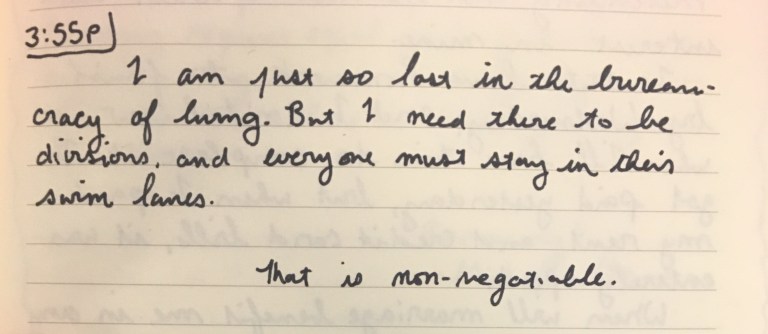 3:55P
I am just so lost in the bureau-
cracy of living. But I need there to be
divisions, and everyone must stay in their
swim lanes.
That is non-negotiable.